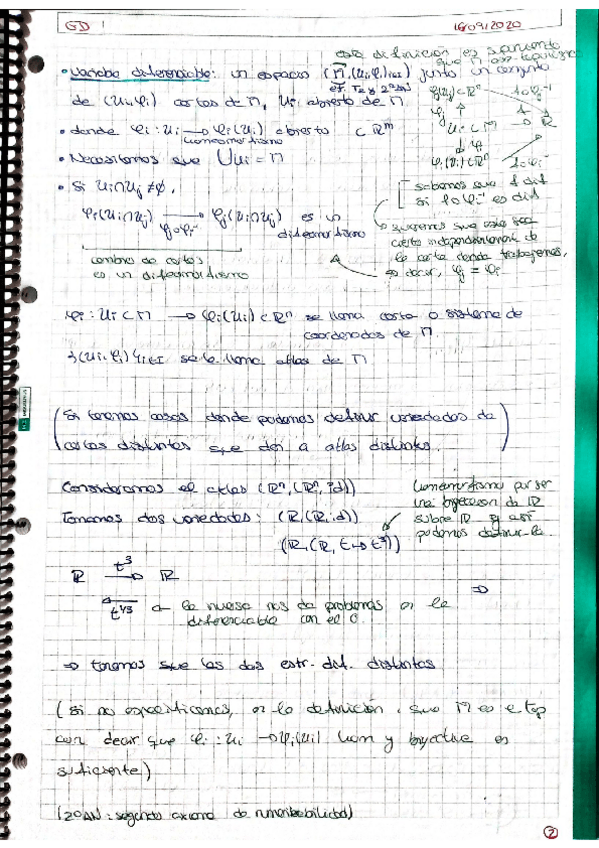 GD 1
16/09/2020
esta definición es suponiendo
que M esp. topológico
· Variedad diferenciable: un espacio (M, (Ui, φi)i∈I) junto un conjunto
eT, T2 y 2ºAN
de (Ui, φi) cartas de M, Ui abierto de M
· donde φi : Ui → φi(Ui) abierto ⊂ ℝᵐ
homeomorfismo
· Necesitamos que ⋃Ui = M
· Si Ui∩Uj ≠ ∅,
φi(Ui∩Uj) → φj(Ui∩Uj) es un
φj∘φi⁻¹ difeomorfismo
cambio de cartas
es un difeomorfismo
φj(Uj) ⊂ ℝⁿ
φj ↑
Ui ⊂ M → ℝ
↓ φi
φi(Ui) ⊂ ℝⁿ
sabemos que f dif
si f∘φi⁻¹ es dif
queremos que esto sea
cierto independientemente de
la carta donde trabajemos,
es decir, φj = φi
φi : Ui ⊂ M → φi(Ui) ⊂ ℝⁿ se llama carta o sistema de
coordenadas de M.
{(Ui, φi)}i∈I se le llama atlas de M
(Si tenemos casos donde podemos definir variedades da
cartas distintas que den a atlas distintos.)
Consideramos el atlas (ℝⁿ, (ℝⁿ, id))
Tomamos dos variedades: (ℝ, (ℝ, id))
(ℝ, (ℝ, t→t³))
homeomorfismo por ser
una biyección de ℝ
sobre ℝ y así
podemos definirla.
ℝ → ℝ
t³
t^1/3
la inversa nos da problemas en la
diferenciable con el 0.
⇒
⇒ tenemos que las dos estr. dif. distintas
(Si no especificamos, en la definición, que M es e.top
con decir que φi : Ui → φi(Ui) hom y biyectiva es
suficiente)
(2ºAN: segundo axioma de numerabilidad)
2